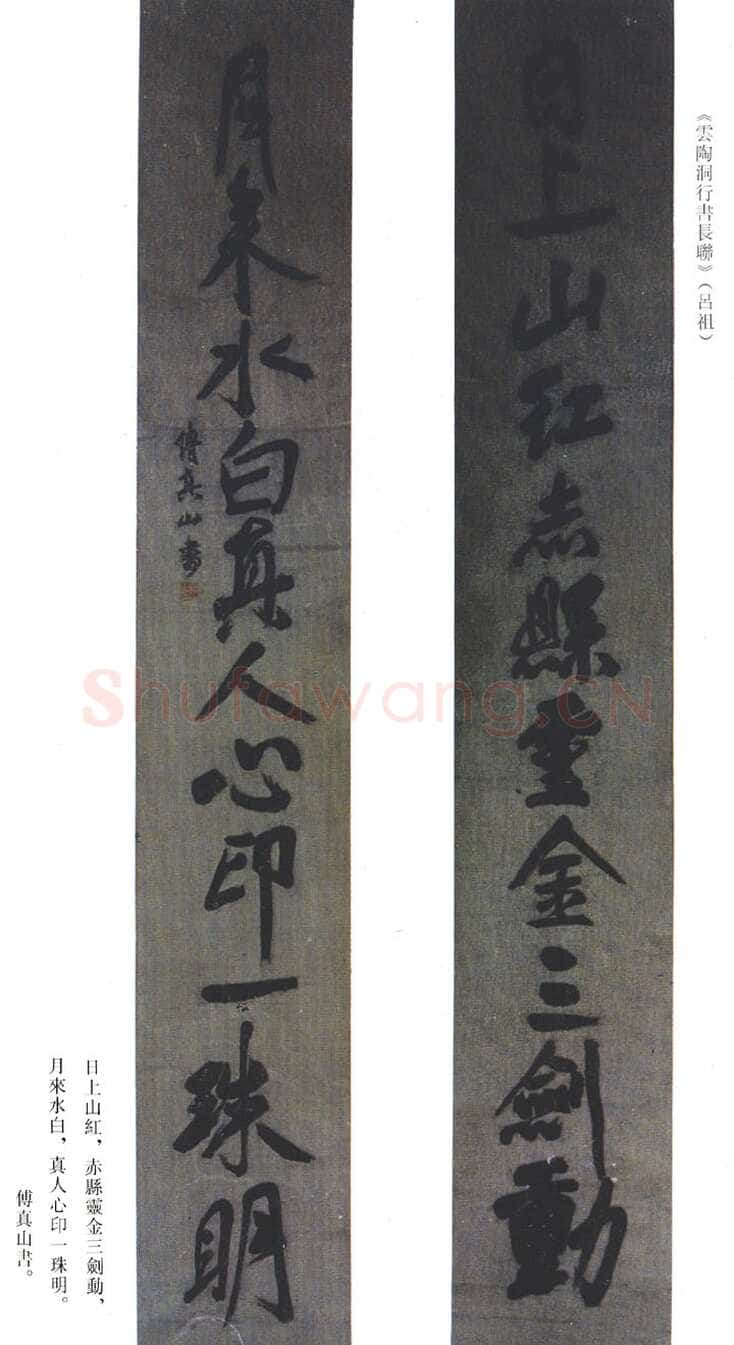 《雲陶洞行書長聯》（呂祖）
日上山紅赤縣靈金三劍動
月来水白真人心印一珠明
傅真山書
日上山紅，赤縣靈金三劍動，
月來水白，真人心印一珠明。
傅真山書。
Shufawang.CN